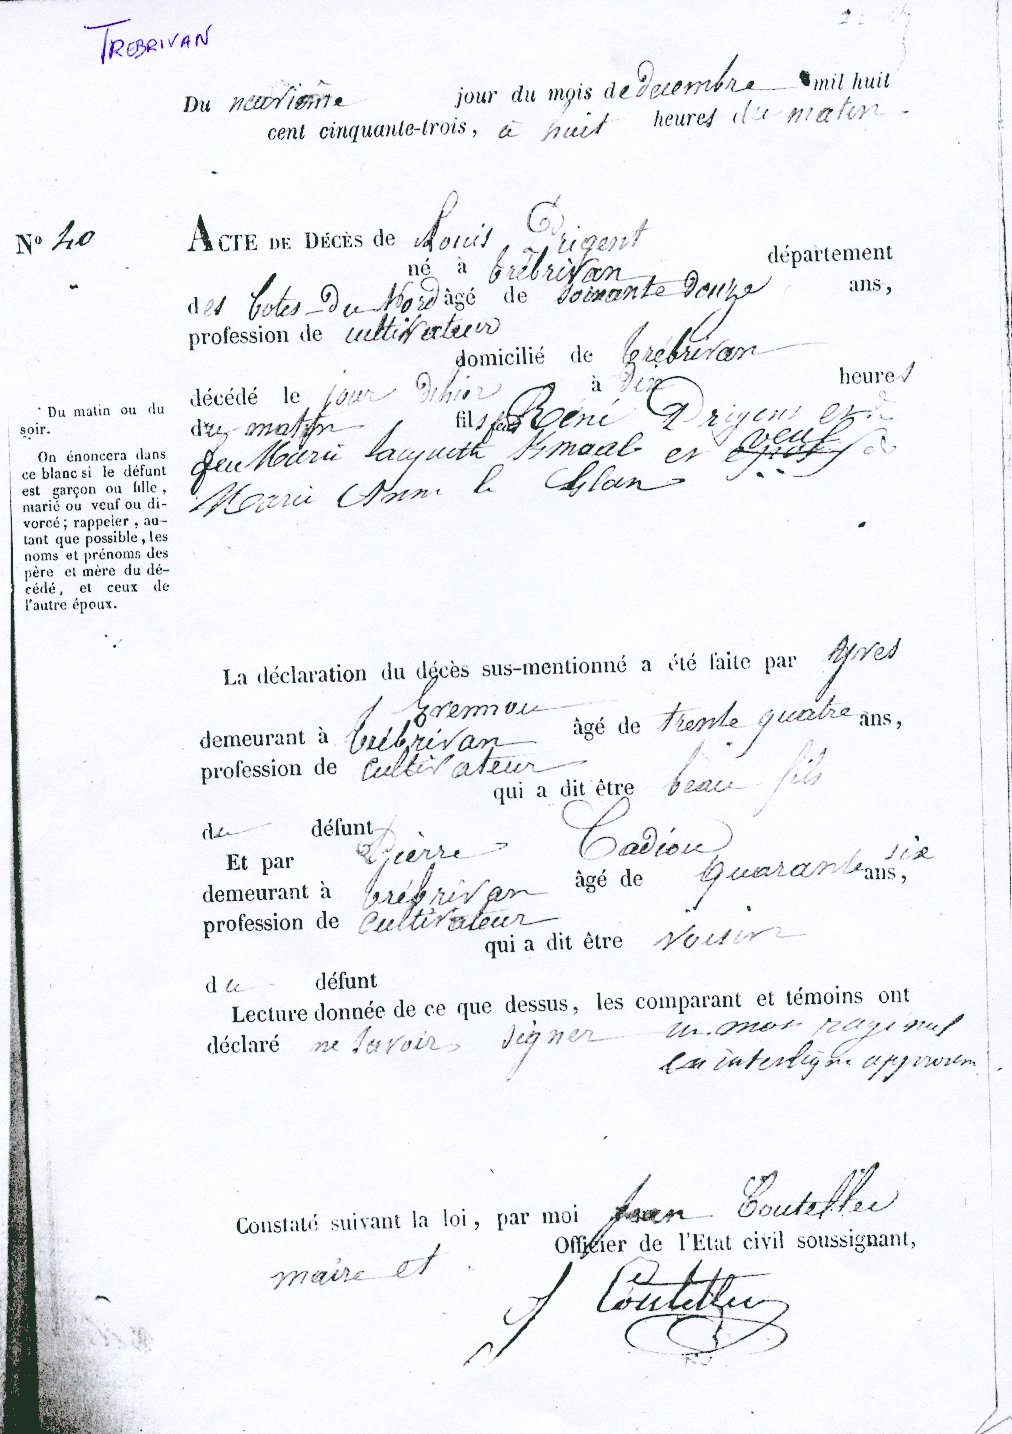 TREBRIVAN
Du neuvième jour du mois de decembre mil huit
cent cinquante-trois, à huit heures du matin
Nº 40
ACTE DE DÉCÈS de Louis Drigent
né à trébrivan département
des Cotes-Du Nord âgé de soixante douze ans,
profession de cultivateur
domicilié de trébrivan
décédé le jour d'hier à dix heures
du matin fils feu Réné Drigent et de
feu Marie Jacquette et veuf de
Marie Anne le Glan
Du matin ou du
soir.
On énoncera dans
ce blanc si le défunt
est garçon ou fille,
marié ou veuf ou di-
vorcé; rappeler, au-
tant que possible, les
noms et prénoms des
père et mère du dé-
cédé, et ceux de
l'autre époux.
La déclaration du décès sus-mentionné a été faite par Yves
Evennou
demeurant à trébrivan âgé de trente quatre ans,
profession de cultivateur
qui a dit être beau fils
du défunt
Et par Pierre Cadiou
demeurant à trébrivan âgé de quarante six ans,
profession de cultivateur
qui a dit être voisin
du défunt
Lecture donnée de ce que dessus, les comparant et témoins ont
déclaré ne savoir signer un mot rayé nul
en interligne approuvé
Constaté suivant la loi, par moi Jean Coutellec
maire et Officier de l'Etat civil soussignant,
J Coutellec